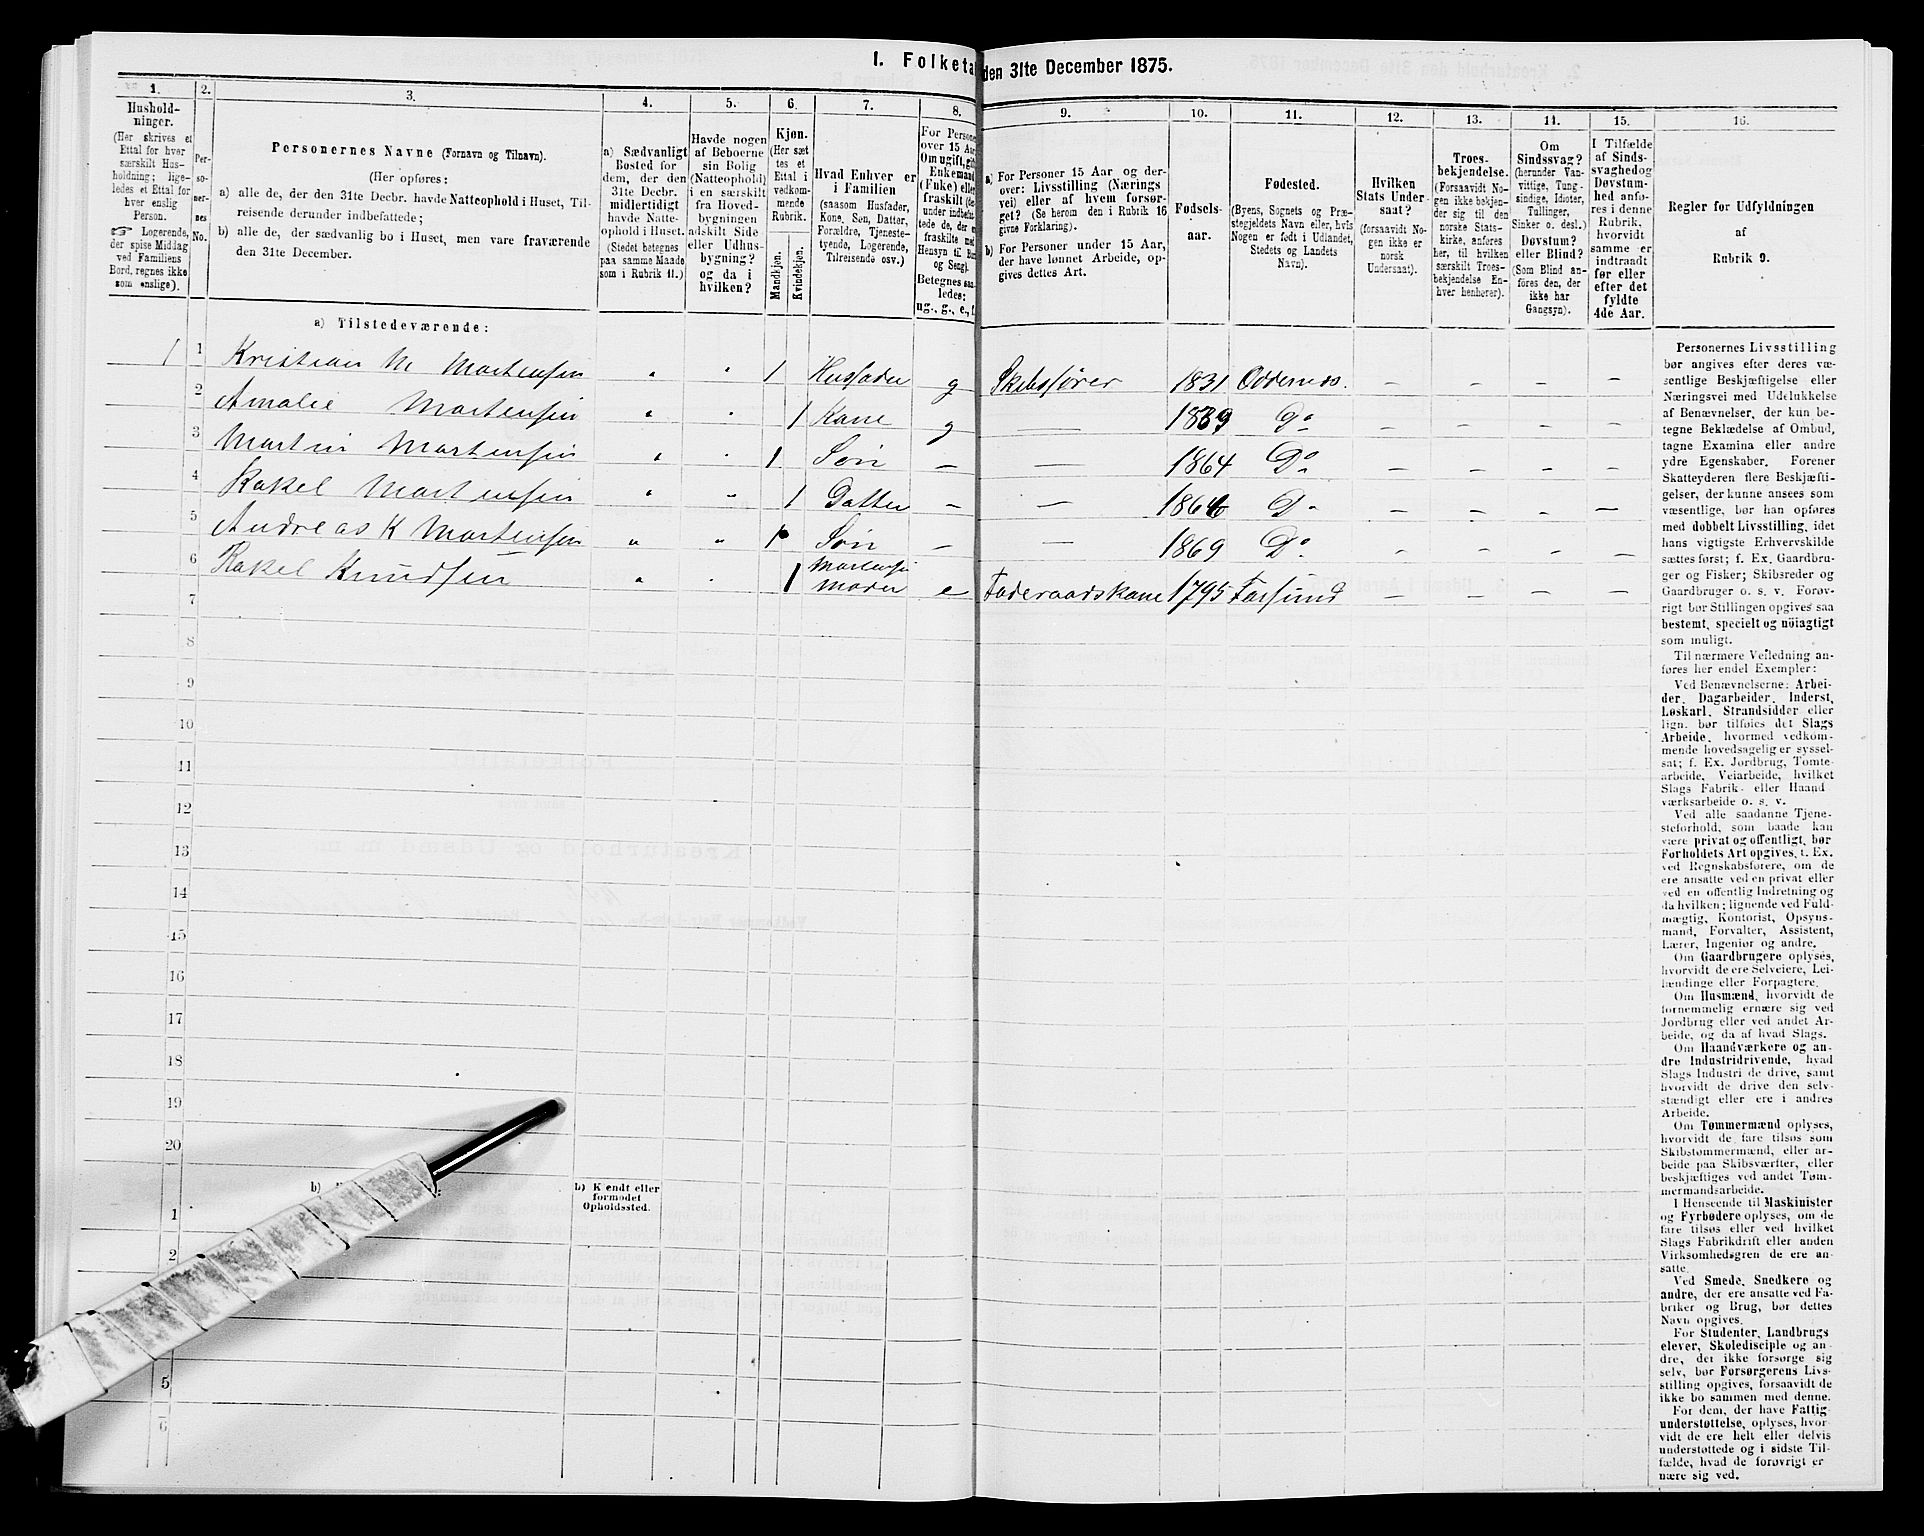 I. Folketa den 31te December 1875.
1. 2. 3. 4. 5. 6. 7. 8. 9. 10. 11. 12. 13. 14. 15. 16.
Hushold-
ninger.
(Her skrives et
Ettal for hver
særskilt Hus-
holdning; lige-
ledes et Ettal for
hver enslig
Person.
☞ Logerende,
der spise Middag
ved Familiens
Bord, regnes ikke
som enslige).
Per-
so-
ner-
nes
No.
Personernes Navne (Fornavn og Tilnavn).
(Her opføres:
a) alle de, der den 31te Decbr. havde Natteophold i Huset, Til-
reisende derunder indbefattede;
b) alle de, der sædvanlig bo i Huset, men vare fraværende
den 31te December.
a) Sædvanligt
Bosted for
dem, der den
31te Decbr.
midlertidigt
havde Natte-
ophold i Huset.
(Stedet betegnes
paa samme Maade
som i Rubrik 11.)
Havde nogen
af Beboerne
sin Bolig
(Natteophold)
i en særskilt
fra Hoved-
bygningen
adskilt Side
eller Udhus-
bygning?
og da i
hvilken?
Kjøn.
(Her sæt
tes et
Ettal i
vedkom-
mende
Rubrik.
Mandkjøn.
Kvindekjøn.
Hvad Enhver er
i Familien
(saasom Husfader,
Kone, Søn, Datter,
Forældre, Tjeneste-
tyende, Logerende,
Tilreisende osv.)
For Persone
over 15 Aa
Om ugift, gi
Enkemand
(Enke) elle
fraskilt (de
under indbefat
tede de, der e
fraskilte med
Hensyn til Bo
og Seng).
Betegnes saa
ledes:
ug., g., e., f.
a) For Personer 15 Aar og der-
over: Livsstilling (Nærings
vei) eller af hvem forsør-
get? (Se herom den i Rubrik 16
givne Forklaring).
b) For Personer under 15 Aar,
der have lønnet Arbeide, op-
gives dettes Art.
Fødsels-
aar.
Fødested.
(Byens, Sognets og Præ-
stegjeldets Navn eller, hvis
Nogen er født i Udlandet,
Stedets og Landets
Navn).
Hvilken
Stats Under
saat?
(forsaavidt No-
gen ikke er
norsk
Undersaat).
Troes-
bekjendelse.
(Forsaavidt No-
gen ikke bekjen-
der sig til den
norske Stats-
kirke, anføres
her, til hvilken
særskilt Troes-
bekjendelse En-
hver henhører).
Om
Sindssvag?
(herunder Van-
vittige, Tung-
sindige, Idioter,
Tullinger,
Sinker o. desl.)
Døvstum?
eller Blind?
(Som Blind an-
føres den, der
ikke har
Gangsyn).
I Tilfælde
af Sinds-
svaghed og
Døvstum-
hed anfø-
res i denne
Rubrik,
hvorvidt
samme er
indtraadt
før eller
efter det
fyldte
4de Aar.
Regler for Udfyldningen
af
Rubrik 9.
a) Tilstedeværende:
1 1 Kristian M Mortensen " " 1 Husfader g Skibsfører 1831 Oddernes. – – – –
2 Amalie Mortensen " " 1 Kone g — 1839 Do – – – –
3 Martin Mortensen " " 1 Søn – — 1864 Do – – – –
4 Rakel Mortensen " " 1 Datter – — 1866 D " – – – –
5 Andreas K Mortensen " " 1 Søn – — 1869 Do – – – –
6 Rakel Knudsen " " 1 moder e Føderaadskone 1795 Farsund – – – –
7
8
9
10
11
12
13
14
15
16
17
18
19
20
b)
b) Kjendt eller
formodet
Opholdssted.
1
2
5
6
Personernes Livsstilling
bør angives efter deres væ-
sentlige Beskjæftigelse eller
Næringsvei med Udelukkelse
af Benævnelser, der kun be-
tegne Beklædelse af Ombud,
tagne Examina eller andre
ydre Egenskaber. Forener
Skatteyderen flere Beskjæfti-
gelser, der kunne ansees som
væsentlige, bør han opføres
med dobbelt Livsstilling, idet
hans vigtigste Erhvervskilde
sættes først; f. Ex. Gaardbru-
ger og Fisker; Skibsreder og
Gaardbruger o. s. v. Forøv-
rigt bør Stillingen opgives saa
bestemt, specielt og nöiagtigt
som muligt.
Til nærmere Veiledning an-
føres her endel Exempler:
Ved Benævnelserne: Arbei-
der, Dagarbeider, Inderst,
Løskarl, Strandsidder eller
lign. bør tilføies det Slags
Arbeide, hvormed vedkom-
mende hovedsagelig er syssel-
sat; f. Ex. Jordbrug, Tomte-
arbeide, Veiarbeide, hvilket
Slags Fabrik- eller Haand
værksarbeide o. s. v.
Ved alle saadanne Tjene-
steforhold, som baade kan
være privat og offentligt, bør
Forholdets Art opgives, f. Ex.
ved Regnskabsførere, om de
ere ansatte ved en privat eller
ved en offentlig Indretning og
da hvilken; lignende ved Fuld-
mægtig, Kontorist, Opsyns-
mand, Forvalter, Assistent,
Lærer, Ingeniør og andre.
Om Gaardbrugere oplyses,
hvorvidt de ere Selveiere, Lei-
lændinge eller Forpagtere.
Om Husmænd, hvorvidt de
fornemmelig ernære sig ved
Jordbrug eller ved andet Ar-
beide, og da af hvad Slags.
Om Haandværkere og an-
dre Industridrivende, hvad
Slags Industri de drive, samt
hvorvidt de drive den selv-
stændigt eller ere i andres
Arbeide.
Om Tømmermænd oplyses,
hvorvidt de fare tilsøs som
Skibstømmermænd, eller ar-
beide paa Skibsværfter, eller
beskjæftiges ved andet Tøm-
mermandsarbeide.
I Henseende til Maskinister
og Fyrbødere oplyses, om de
fare tilsøs eller ved hvilket
Slags Fabrikdrift eller anden
Virksomhedsgren de ere an-
satte.
Ved Smede, Snedkere og
andre, der ere ansatte ved Fa-
briker og Brug, bør dettes
Navn opgives.
For Studenter, Landbrugs
elever, Skoledisciple og an-
dre, der ikke forsørge sig
selv, bør Forsørgerens Livs-
stilling opgives, forsaavidt de
ikke bo sammen med denne.
For dem, der have Fattig-
understøttelse, oplyses, hvor-
vidt de ere helt eller delvis
understøttede og i sidste Til-
fælde, hvad de forøvrigt er
nære sig ved.